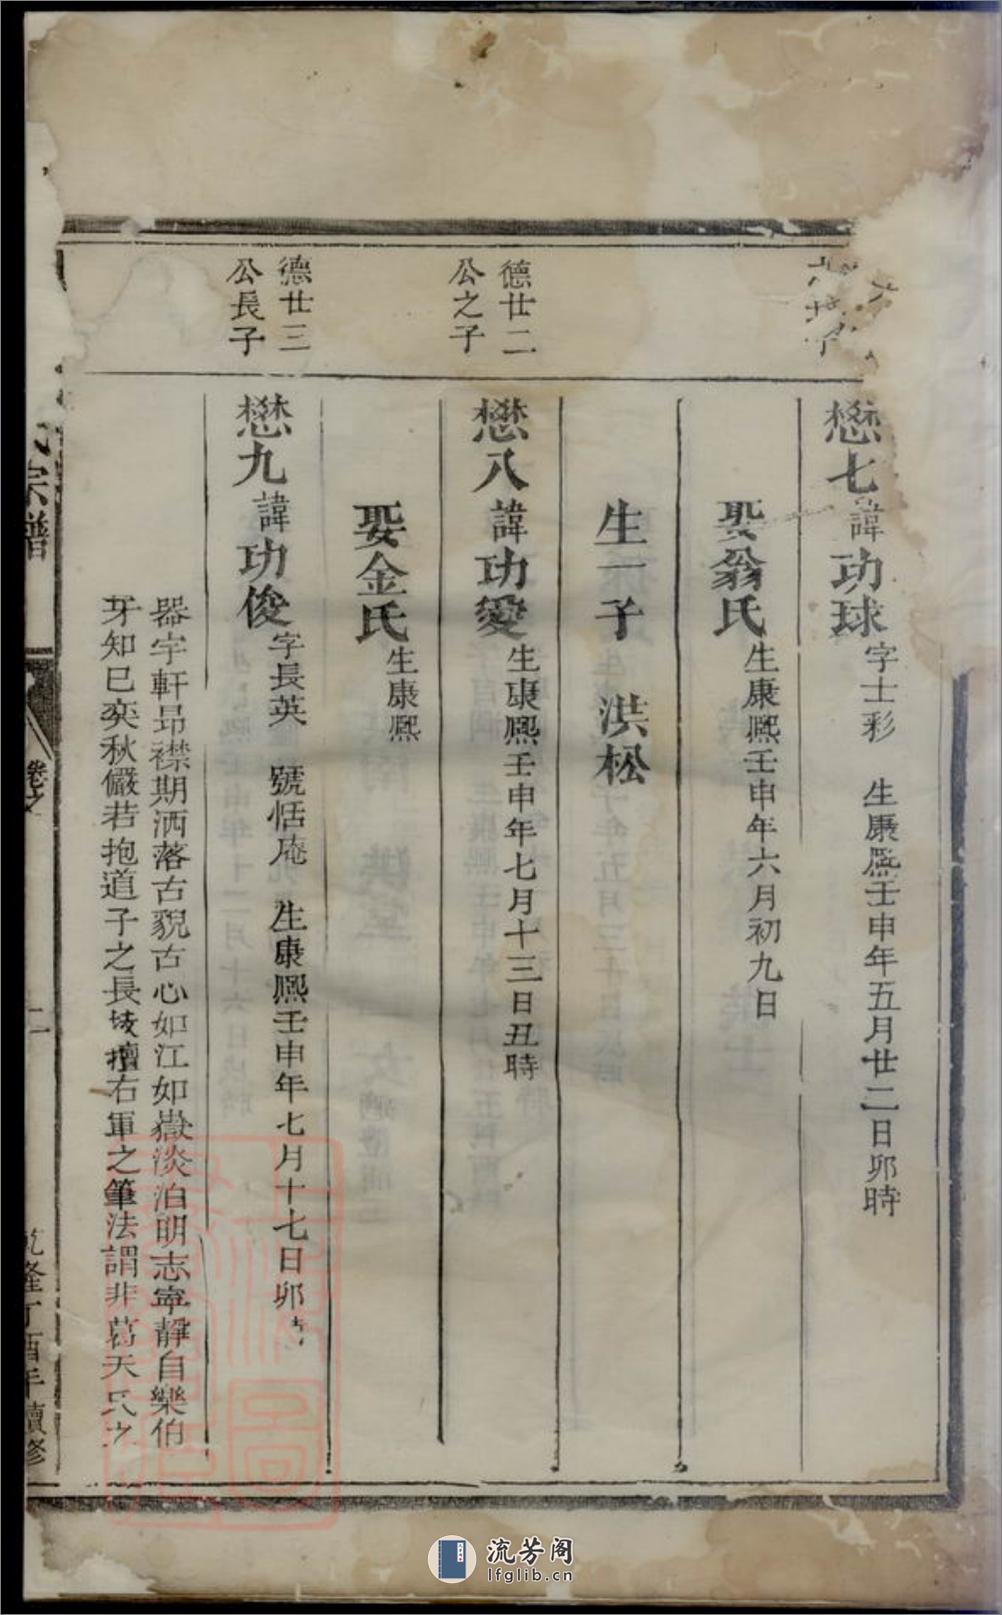 懋七諱功球字士彩 生康熙壬申年五月廿二日卯時
娶翁氏生康熙壬申年六月初九日
生一子 洪松
德廿二
公之子
懋八諱功愛生康熙壬申年七月十三日丑時
娶金氏生康熙
德廿三
公長子
懋九諱功俊字長英 號恬庵 生康熙壬申年七月十七日卯
器宇軒昻襟期洒落古貌古心如江如嶽淡泊明志寧靜自樂伯
牙知已奕秋儼若抱道子之長技擅右軍之筆法謂非葛天氏之
氏宗譜 卷之 乾隆丁酉年續修
流芳阁
lfglib.cn